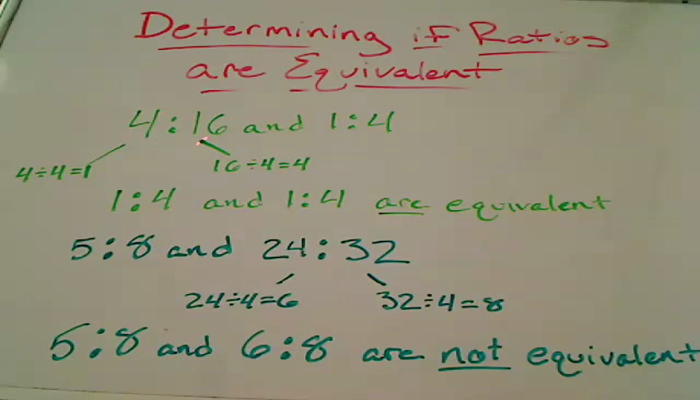 Determining if Ratios
are Equivalent
4:16 and 1:4
4÷4=1 16÷4=4
1:4 and 1:4 are equivalent
5:8 and 24:32
24÷4=6 32÷4=8
5:8 and 6:8 are not equivalent